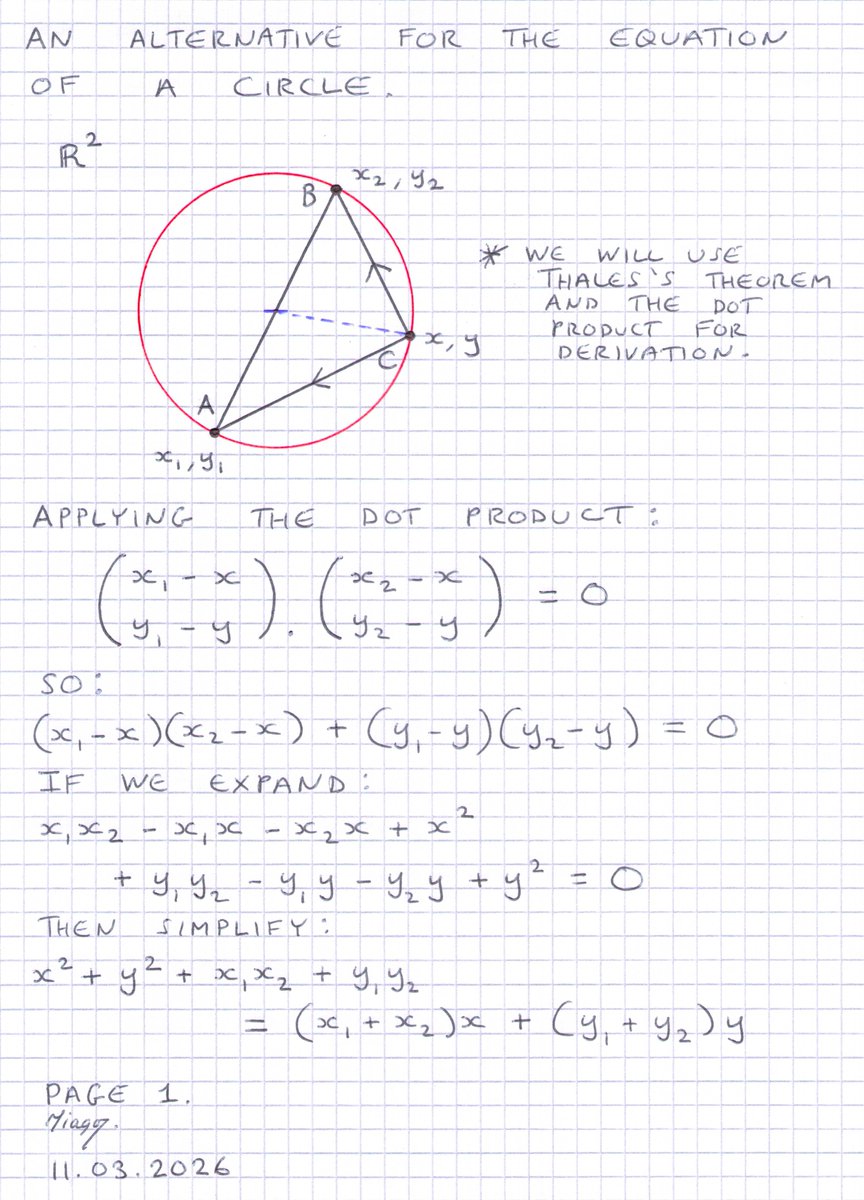 AN ALTERNATIVE FOR THE EQUATION
OF A CIRCLE.
ℝ²
B x₂, y₂
* WE WILL USE
THALES'S THEOREM
AND THE DOT
PRODUCT FOR
DERIVATION.
C x, y
A
x₁, y₁
APPLYING THE DOT PRODUCT:
(x₁ - x
y₁ - y) . (x₂ - x
y₂ - y) = 0
SO:
(x₁ - x)(x₂ - x) + (y₁ - y)(y₂ - y) = 0
IF WE EXPAND:
x₁x₂ - x₁x - x₂x + x²
+ y₁y₂ - y₁y - y₂y + y² = 0
THEN SIMPLIFY:
x² + y² + x₁x₂ + y₁y₂
= (x₁ + x₂)x + (y₁ + y₂)y
PAGE 1.
11.03.2026